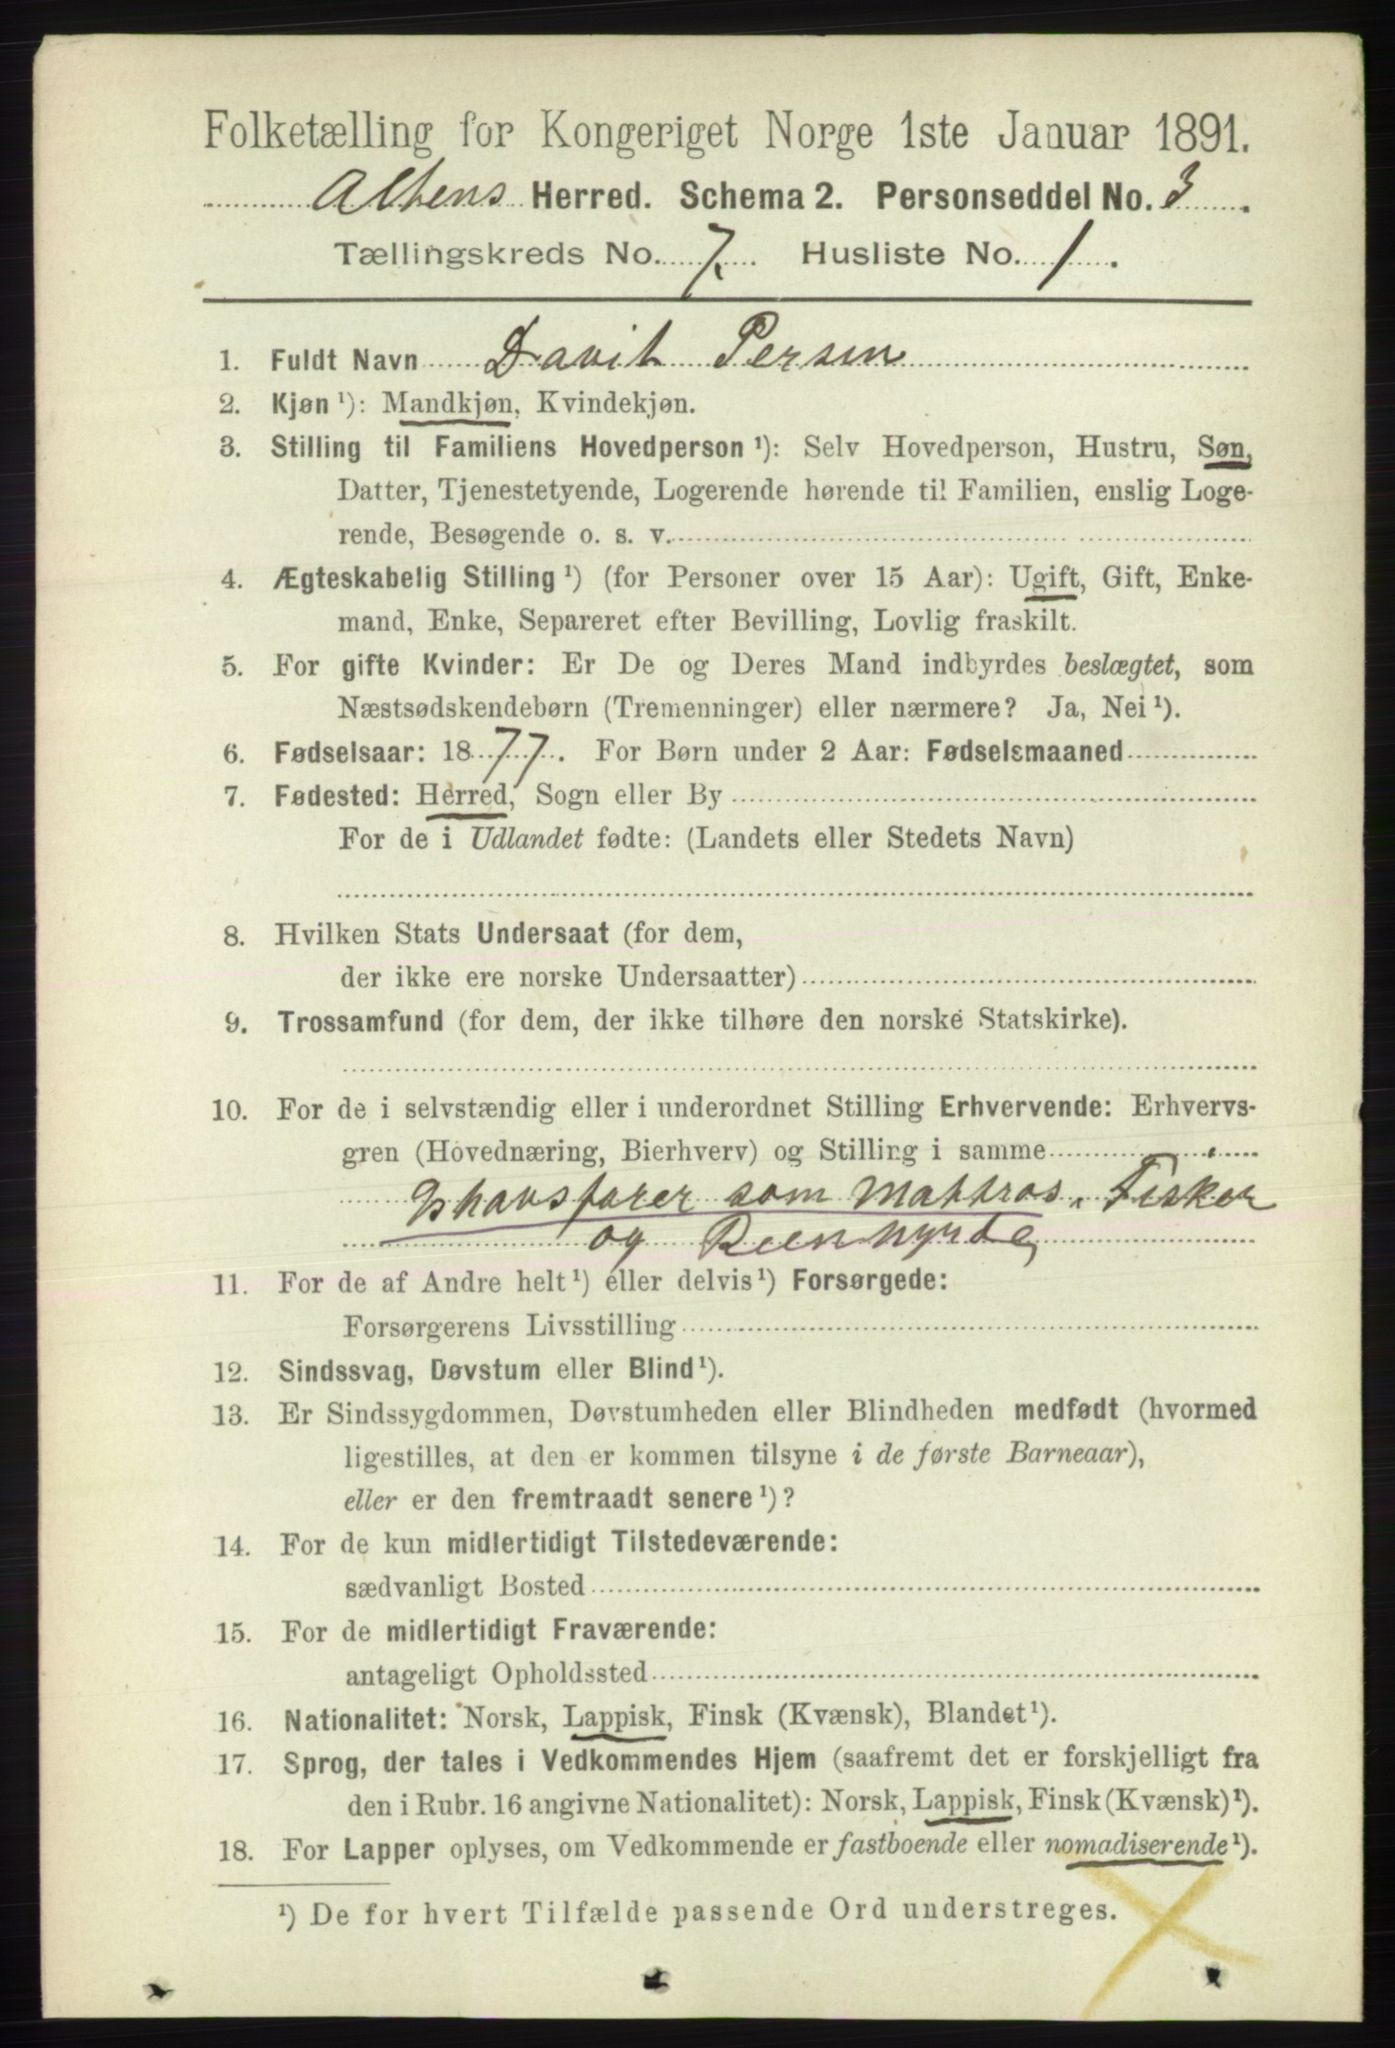 Folketælling for Kongeriget Norge 1ste Januar 1891.
Altens Herred. Schema 2. Personseddel No. 3.
Tællingskreds No. 7. Husliste No. 1.
1. Fuldt Navn Davit Persen
2. Kjøn ¹): Mandkjøn, Kvindekjøn.
3. Stilling til Familiens Hovedperson ¹): Selv Hovedperson, Hustru, Søn,
Datter, Tjenestetyende, Logerende hørende til Familien, enslig Loge-
rende, Besøgende o. s. v.
4. Ægteskabelig Stilling ¹) (for Personer over 15 Aar): Ugift, Gift, Enke-
mand, Enke, Separeret efter Bevilling, Lovlig fraskilt.
5. For gifte Kvinder: Er De og Deres Mand indbyrdes beslægtet, som
Næstsødskendebørn (Tremenninger) eller nærmere? Ja, Nei ¹).
6. Fødselsaar: 1877. For Børn under 2 Aar: Fødselsmaaned
7. Fødested: Herred, Sogn eller By
For de i Udlandet fødte: (Landets eller Stedets Navn)
8. Hvilken Stats Undersaat (for dem,
der ikke ere norske Undersaatter)
9. Trossamfund (for dem, der ikke tilhøre den norske Statskirke).
10. For de i selvstændig eller i underordnet Stilling Erhvervende: Erhvervs-
gren (Hovednæring, Bierhverv) og Stilling i samme
Ishavsfarer som Mattros, Fisker
og Reenhyrde
11. For de af Andre helt ¹) eller delvis ¹) Forsørgede:
Forsørgerens Livsstilling
12. Sindssvag, Døvstum eller Blind ¹).
13. Er Sindssygdommen, Døvstumheden eller Blindheden medfødt (hvormed
ligestilles, at den er kommen tilsyne i de første Barneaar),
eller er den fremtraadt senere ¹)?
14. For de kun midlertidigt Tilstedeværende:
sædvanligt Bosted
15. For de midlertidigt Fraværende:
antageligt Opholdssted
16. Nationalitet: Norsk, Lappisk, Finsk (Kvænsk), Blandet ¹).
17. Sprog, der tales i Vedkommendes Hjem (saafremt det er forskjelligt fra
den i Rubr. 16 angivne Nationalitet): Norsk, Lappisk, Finsk (Kvænsk) ¹).
18. For Lapper oplyses, om Vedkommende er fastboende eller nomadiserende ¹).
¹) De for hvert Tilfælde passende Ord understreges.